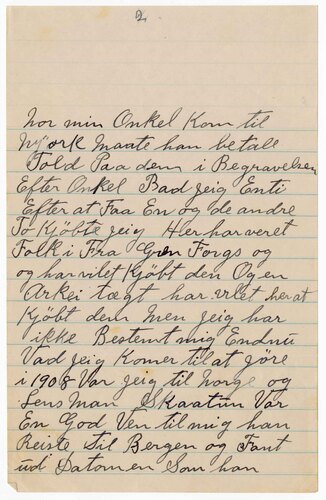 2
nor min Onkel Kom til
Nÿork maate han betale
Told Paa dem i Begravelsen
Efter Onkel Bad jeig Enti
Efter at Faa En og de andre
To Kjöbte jeig Her har veret
Folk i Fra Gren Forgs og
og har vilet Kjöbt den Og en
Arkei tægt har vlet her at
Kjöbt dem Men jeig har
ikke Bestemt mig Endnu
Vad jeig Komer til at jöre
i 1908 Var jeig til Norge og
Lens Man Skaatun Var
En God Ven til mig han
Reiste til Bergen og Fant
ud Datomen Som han